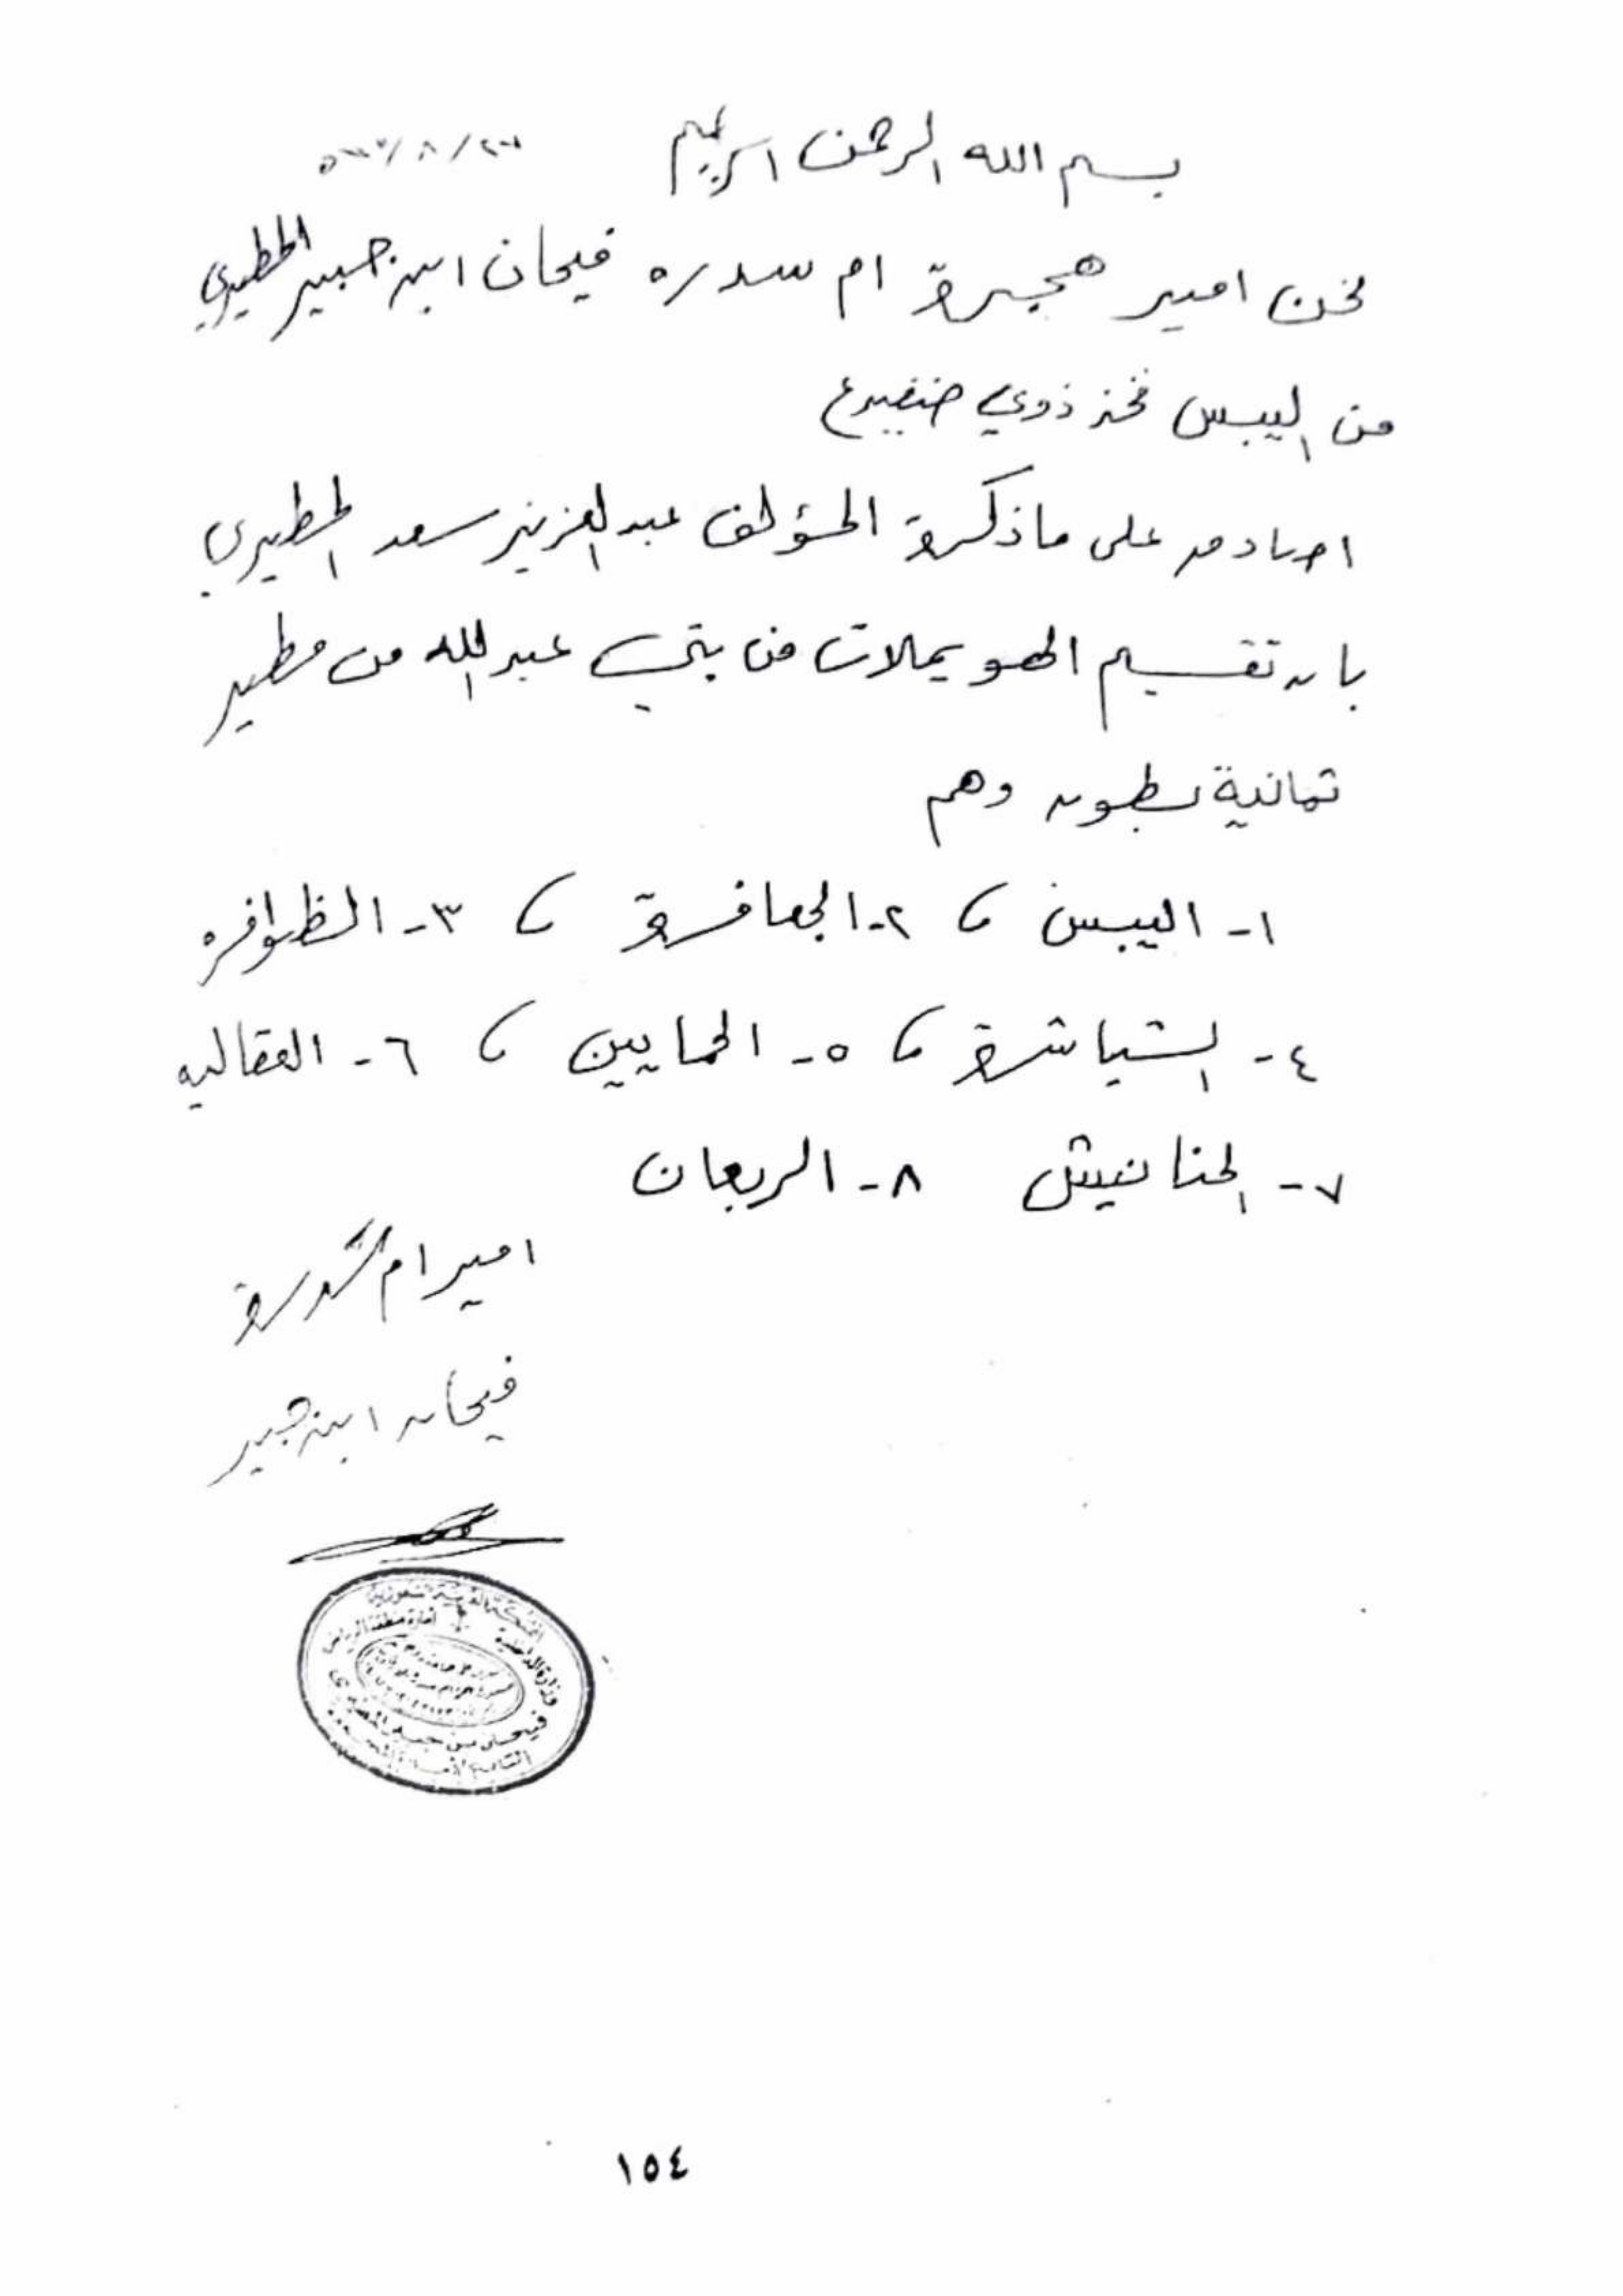 بسم الله الرحمن الرحيم
نحن امير هجرة ام سدره فيحان ابن جبير المطيري
من اليبس فخذ ذوي ضفيدع
اصادق على ماذكرة المؤلف عبدالعزيز سعد المطيري
بان تقسيم الهويملات من بني عبدالله من مطير
ثمانية بطون وهم
١- اليبس ، ٢- الجعافرة ، ٣- الظوافره
٤- الشياشرة ، ٥- الحمايين ، ٦- العقاليه
٧- الحنانيش ٨- الربعان
امير ام سدرة
فيحان ابن جبير
المملكة العربية السعودية
وزارة الداخلية
امارة منطقة الرياض
١٥٤